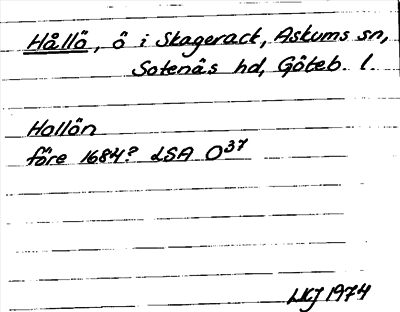 Hållö, ö i Skagerack, Askums sn,
Sotenäs hd, Göteb. l.
Hollön
före 1684? LSA O37
LKJ 1974